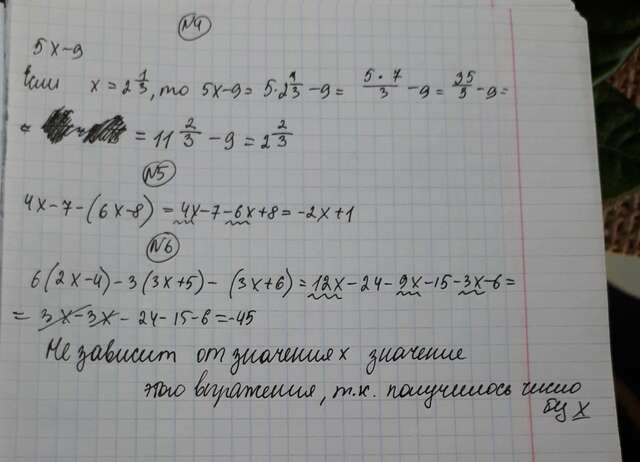 №4
5x-9
Если x = 2 1/3, то 5x-9 = 5·2 1/3 - 9 = 5·7/3 - 9 = 35/3 - 9 =
= = 11 2/3 - 9 = 2 2/3
№5
4x-7-(6x-8) = 4x-7-6x+8 = -2x+1
№6
6(2x-4)-3(3x+5)-(3x+6) = 12x-24-9x-15-3x-6 =
= 3x-3x-24-15-6 = -45
Не зависит от значения x значение
этого выражения, т.к. получилось число
без x